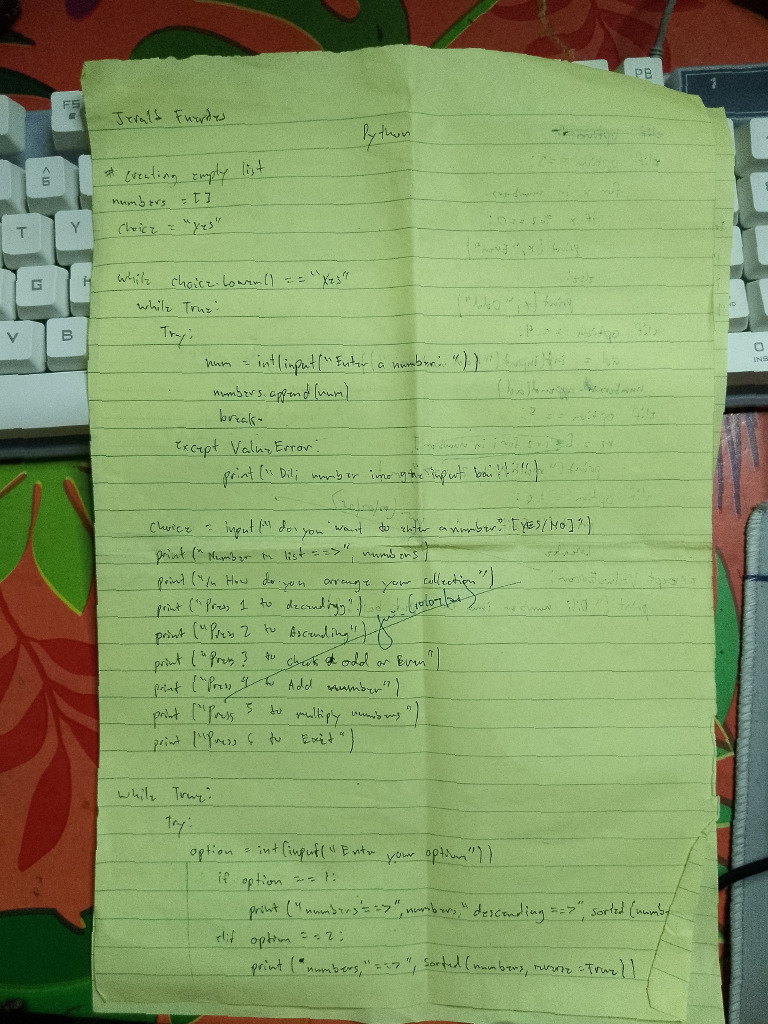 Python
# creating empty list
numbers = []
choice = "yes"
while choice.lower() == "yes"
while True:
Try:
num = int(input("Enter a number: "))
numbers.append(num)
break
except ValueError:
print("Dili number imo gi input bai!!")
choice = input(" do you want to enter a number? [YES/NO]")
print("Number in list ==>", numbers)
print("/n How do you arrange your collection")
print("Press 1 to decending")
print("Press 2 to Ascending")
print("Press 3 to check odd or Even")
print("Press 4 to Add number")
print("Press 5 to multiply numbers")
print("Press 6 to Exit")
while True:
Try:
option = int(input("Enter your option"))
if option == 1:
print("numbers ==>", numbers, "descending ==>", sorted(numbe
elif option == 2:
print("numbers," ==>", sorted(numbers, reverse = True))
F5
PB
^
6
T
Y
G
H
V
B
0
INS